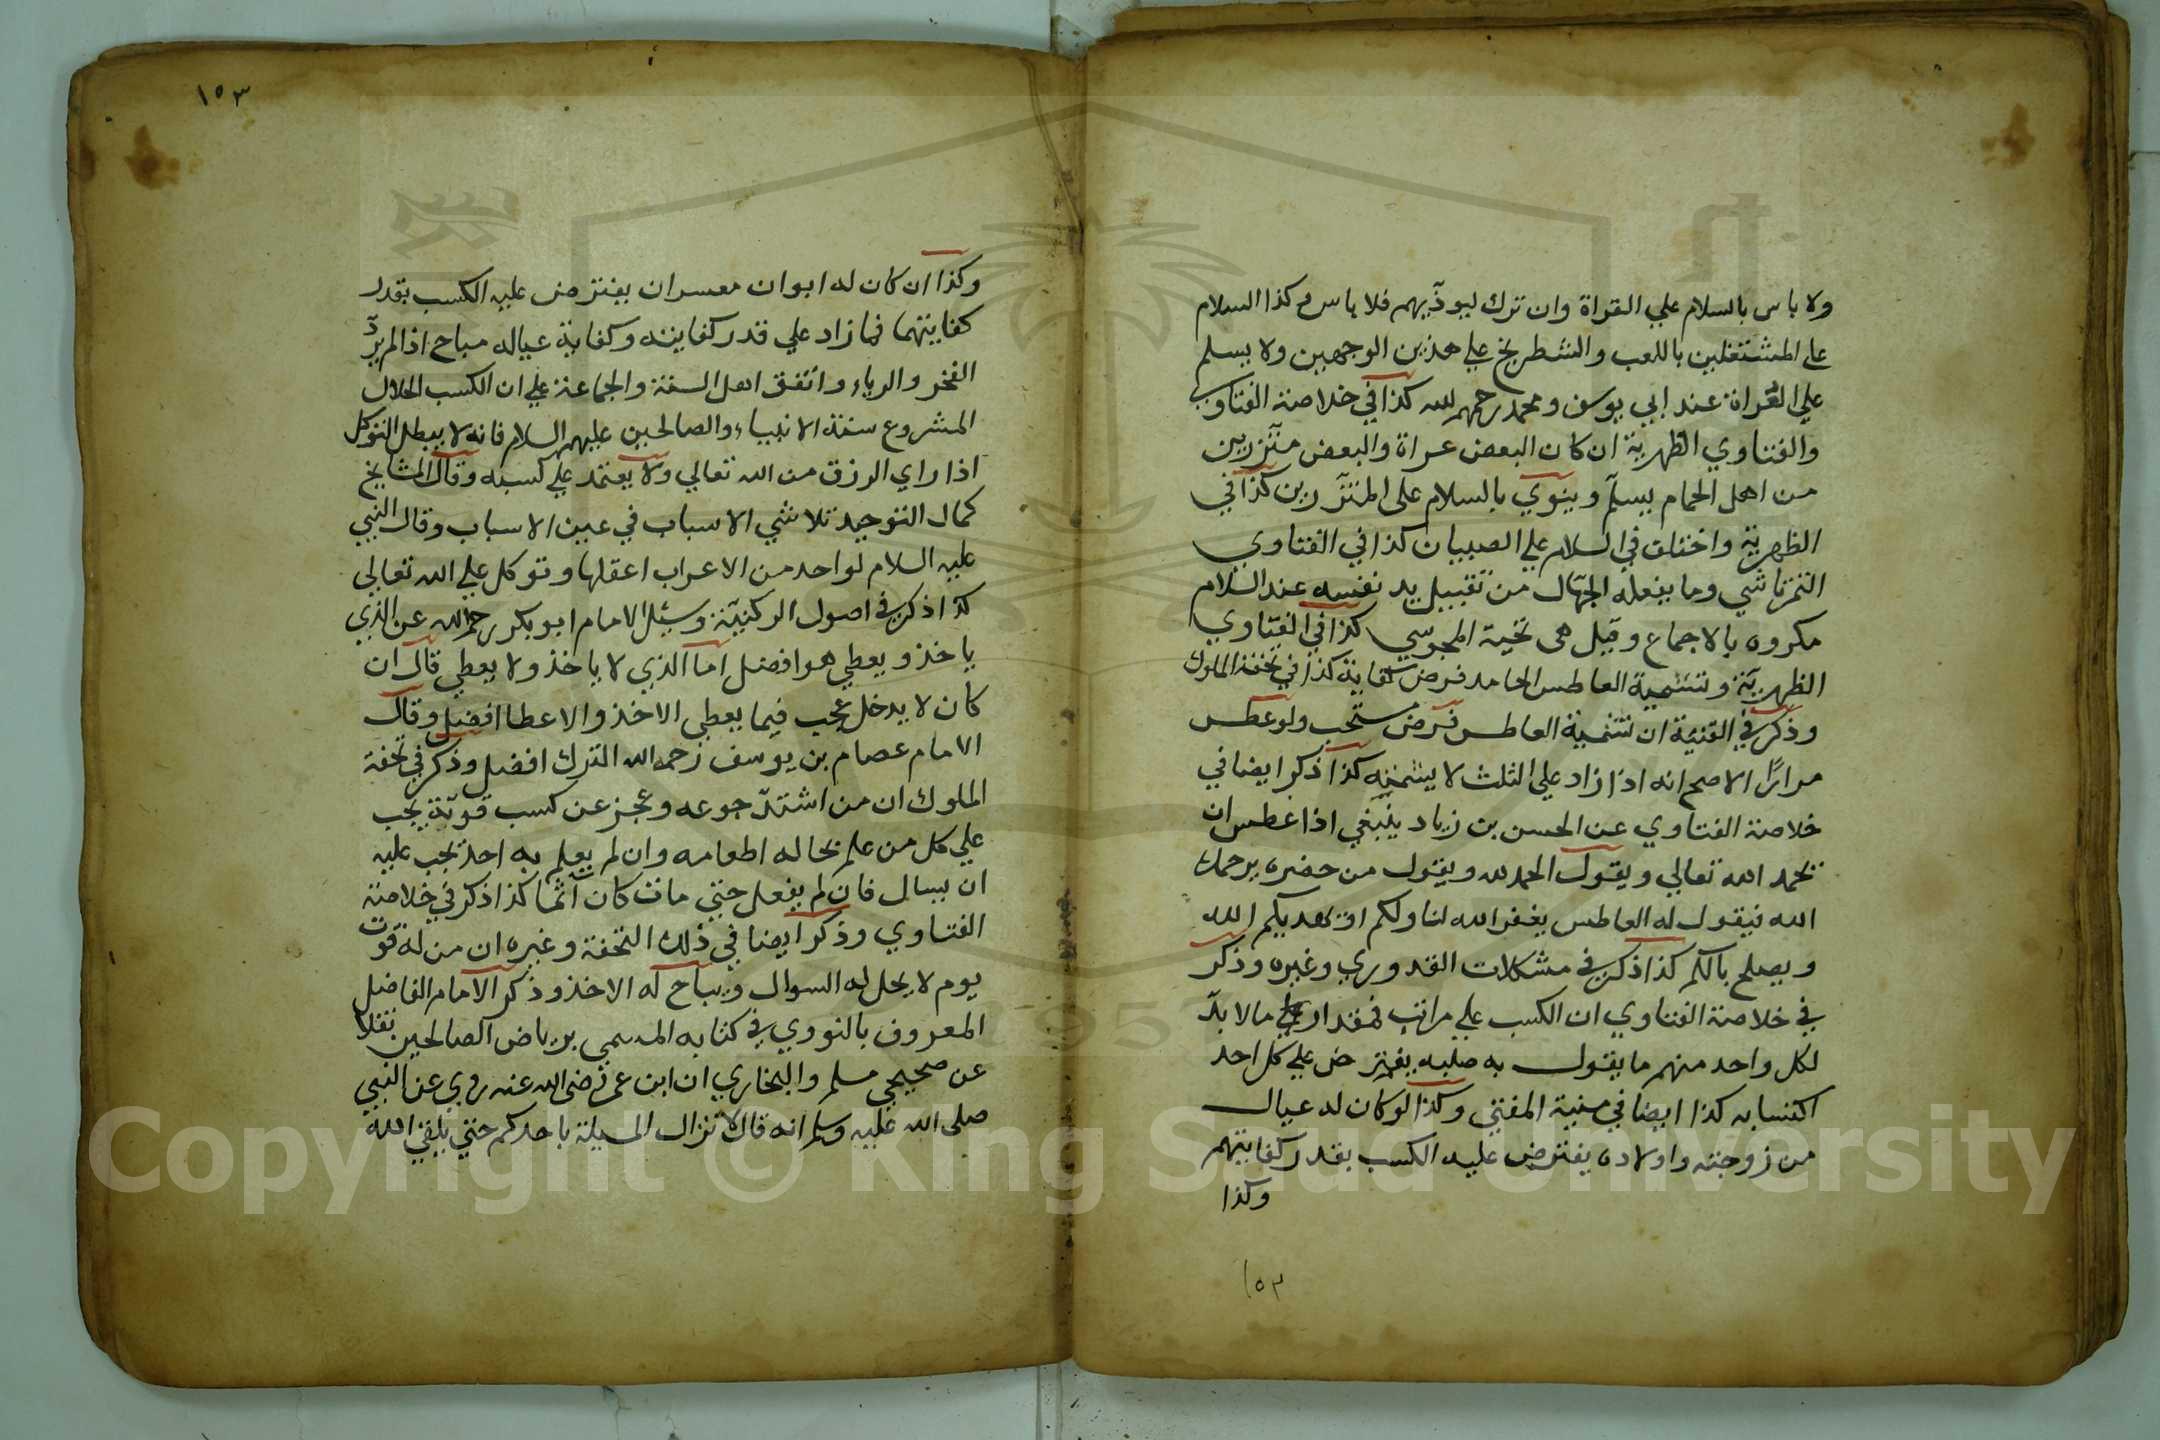 ولا باس بالسلام علي القراة وان ترك ليوذّيهم فلا باس وكذا السلام
علي المشتغلين باللعب والشطريخ علي هذين الوجهين ولا يسلم
علي القراة عند ابي يوسف ومحمد رحمهم لله كذا في خلاصة الفتاوي
والفتاوي الظهرية ان كان البعض عراة والبعض متّزرين
من اهل الحمام يسلّم وينوي بالسلام على المتزّرين كذا في
الظهرية واختلف في السلام علي الصبيان كذا في الفتاوي
التمرتاشي وما يفعله الجهّال من تقبيل يد نفسه عند السلام
مكروه بالاجماع وقيل هى تحية المجوسي كذا في الفتاوي
الظهريّة وتشمية العاطس الحامد فرض كفاية كذا في تحفة الملوك
وذكر في القنية ان تشمية العاطس فرض مستحب ولو عطس
مرارًا الاصح انه اذا زاد علي الثلث لا يشمته كذا ذكر ايضا في
خلاصة الفتاوي عن الحسن بن زياد ينبغي اذا عطس ان
يحمد الله تعالي ويقول الحمد لله ويقول من حضره يرحمك
الله فيقول له العاطس يغفر الله لنا ولكم او يهديكم الله
ويصلح بالكم كذا ذكر في مشكلات القدوري وغيره وذكر
في خلاصة الفتاوي ان الكسب علي مراتب فمقدار مالا بدّ
لكل واحد منهم ما يقول به صلبه يفترض علي كل احد
اكتسابه كذا ايضا في منية المفتي وكذا لو كان له عيال
من زوجته واولاده يفترض عليه الكسب بقدر كفايتهم
وكذا
١٥٣
١٥٣
وكذا ان كان له ابوان معسران يفترض عليه الكسب بقدر
كفايتهما فما زاد علي قدر كفايته وكفاية عياله مباح اذا لم يردّ
الفخر والرياء واتفق اهل السنة والجماعة علي ان الكسب الحلال
المشروع سنة الانبياء والصالحين عليهم السلام فانه لا يبطل التوكل
اذا راي الرزق من الله تعالي ولا يعتمد علي كسبه وقال المشايخ
كمال التوحيد تلاشي الاسباب في عين الاسباب وقال النبي
عليه السلام لواحد من الاعراب اعقلها وتوكل علي الله تعالي
كذا ذكر في اصول الركنيّة وسئل الامام ابو بكر رحمه الله عن الذي
ياخذ ويعطي هو افضل اما الذي لا ياخذ ولا يعطي قال ان
كان لا يدخل عجب فيما يعطي الاخذ والاعطا افضل وقال
الامام عصام بن يوسف رحمه الله الترك افضل وذكر في تحفة
الملوك ان من اشتدّ جوعه وعجز عن كسب قوته يجب
علي كل من علم بحاله اطعامه وان لم يعلم به احد يجب عليه
ان يسال فان لم يفعل حتي مات كان آثما كذا ذكر في خلاصة
الفتاوي وذكر ايضا في ذلك التحفة وغيره ان من له قوت
يوم لا يحل له السوال ويباح له الاخذ وذكر الامام الفاضل
المعروف بالنووي في كتابه المسمي برياض الصالحين نقلا
عن صحيحي مسلم والبخاري ان ابن عمر رضى الله عنه روي عن النبي
صلى الله عليه وسلم انه قال لا تزال المسيلة باحدكم حتي يلقي الله
Copyright © King Saud University